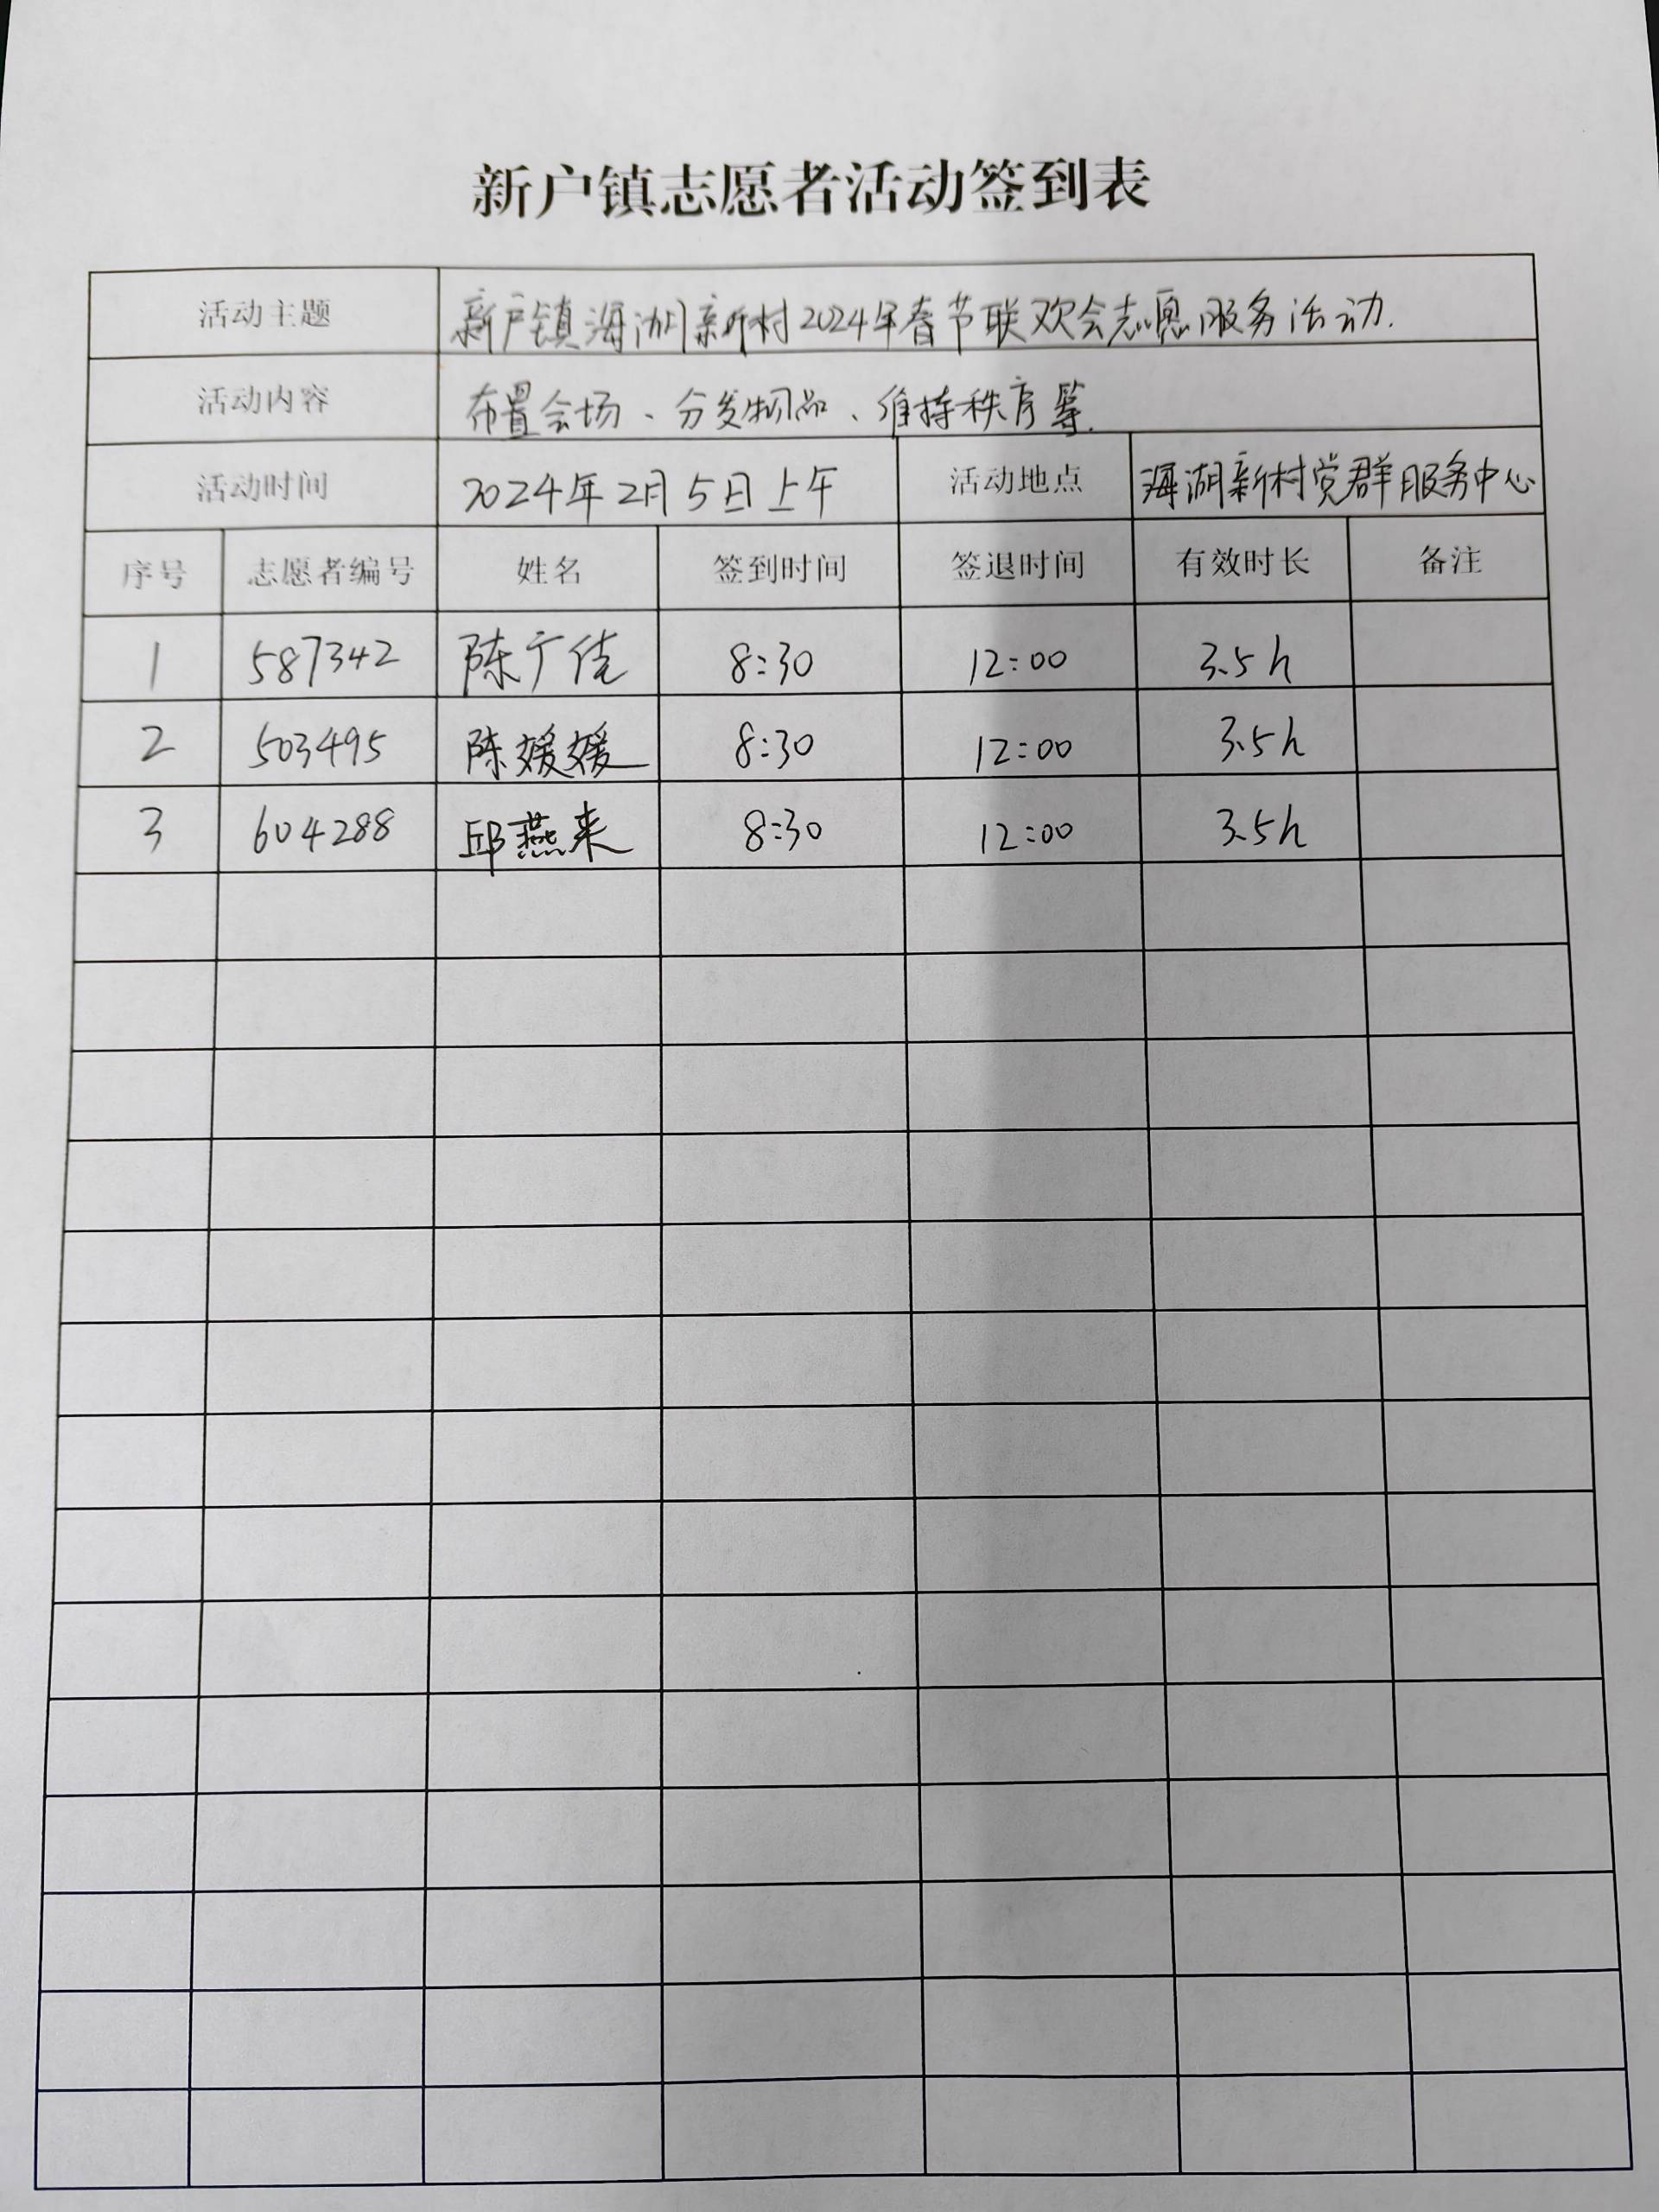 新户镇志愿者活动签到表
活动主题 新户镇海湖新村2024年春节联欢会志愿服务活动.
活动内容 布置会场、分发物品、维持秩序等.
活动时间 2024年2月5日上午 活动地点 海湖新村党群服务中心
序号 志愿者编号 姓名 签到时间 签退时间 有效时长 备注
1 587342 陈广佳 8:30 12:00 3.5h
2 503495 陈媛媛 8:30 12:00 3.5h
3 604288 邱燕来 8:30 12:00 3.5h